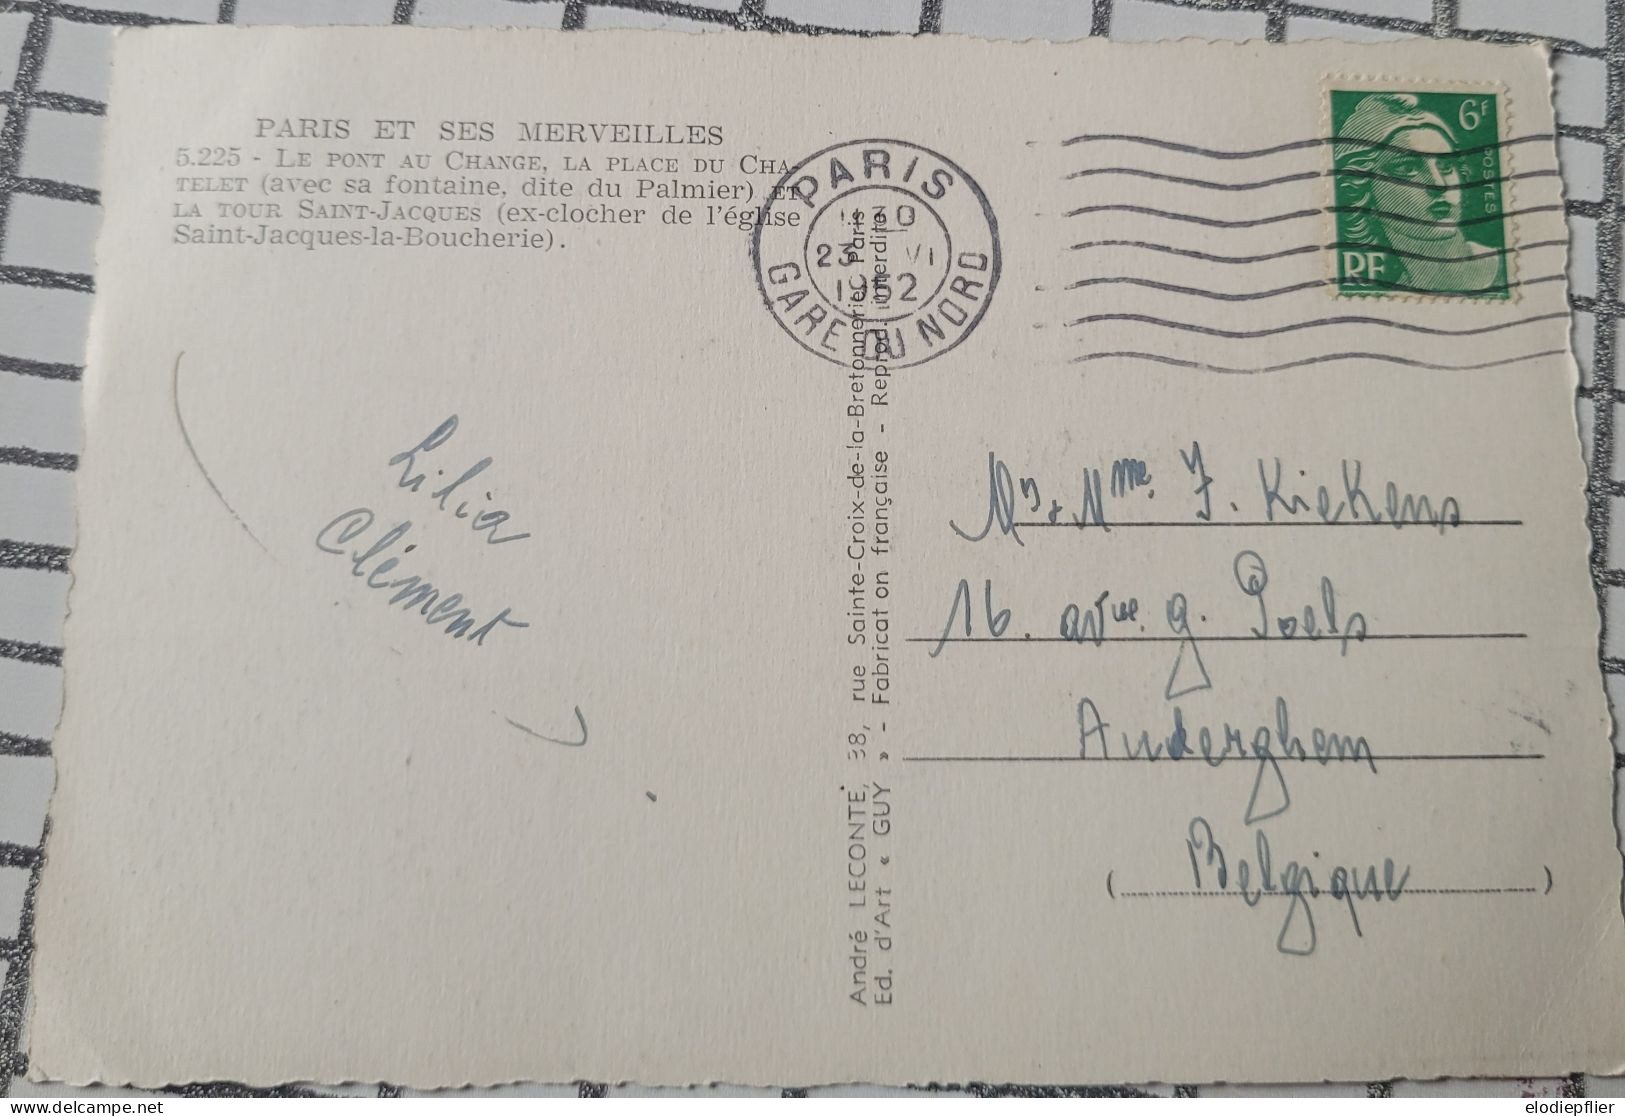 PARIS ET SES MERVEILLES
5.225 - LE PONT AU CHANGE, LA PLACE DU CHA-
TELET (avec sa fontaine, dite du Palmier) ET
LA TOUR SAINT-JACQUES (ex-clocher de l'église
Saint-Jacques-la-Boucherie).
Lilia
Clément
André LECONTE, 38, rue Sainte-Croix-de-la-Bretonnerie, Paris
Ed. d'Art « GUY » - Fabrication française - Reprod. interdite
PARIS
23 VI
1952
GARE DU NORD
6F
POSTES
RF
Mr & Mme. J. Kiekens
16. avue. g. Poels
Auderghem
(Belgique)
elodiepflier